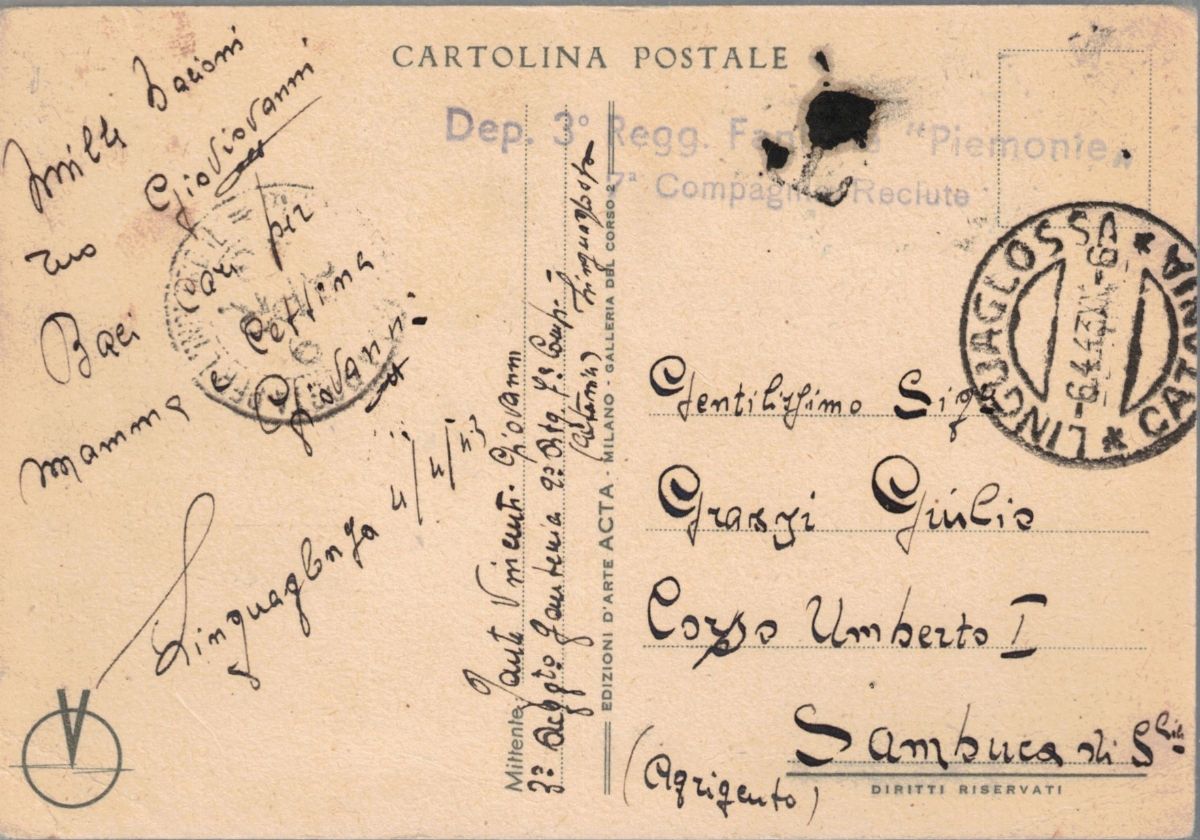 CARTOLINA POSTALE
Dep. 3° Regg. Fanteria "Piemonte"
7ª Compagnia Reclute
LINGUAGLOSSA * CATANIA *
-6.4.43
Mille Bacioni
tuo Giovanni
Baci cari per
mamma e Pettina
Giovanni
Linguaglossa 4/4/43
Mittente: Fante Vincenti Giovanni
3º Reggto Fanteria 2º Btg 7ª Comp.
(Catania) Linguaglossa
EDIZIONI D'ARTE ACTA - MILANO - GALLERIA DEL CORSO 2
Gentilissimo Sig.
Grassi Giulio
Corso Umberto I
Sambuca di
(Agrigento)
DIRITTI RISERVATI